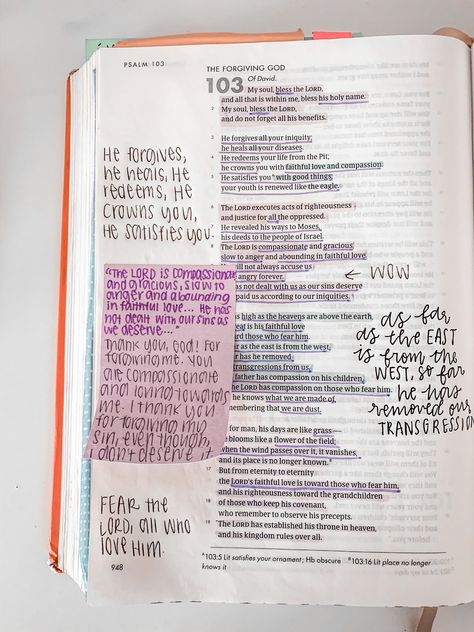 PSALM 103
THE FORGIVING GOD
103
Of David.
My soul, bless the LORD,
and all that is within me, bless his holy name.
2 My soul, bless the LORD,
and do not forget all his benefits.
3 He forgives all your iniquity;
he heals all your diseases.
4 He redeems your life from the Pit;
he crowns you with faithful love and compassion.
5 He satisfies you with good things;
your youth is renewed like the eagle.
6 The LORD executes acts of righteousness
and justice for all the oppressed.
7 He revealed his ways to Moses,
his deeds to the people of Israel.
8 The LORD is compassionate and gracious,
slow to anger and abounding in faithful love.
will not always accuse us
angry forever.
has not dealt with us as our sins deserve
paid us according to our iniquities.
as high as the heavens are above the earth,
great is his faithful love
those who fear him.
far as the east is from the west,
far has he removed
transgressions from us.
father has compassion on his children,
the LORD has compassion on those who fear him.
he knows what we are made of,
remembering that we are dust.
for man, his days are like grass—
he blooms like a flower of the field;
when the wind passes over it, it vanishes,
and its place is no longer known.
17 But from eternity to eternity
the LORD's faithful love is toward those who fear him,
and his righteousness toward the grandchildren
18 of those who keep his covenant,
who remember to observe his precepts.
19 The LORD has established his throne in heaven,
and his kingdom rules over all.
He forgives,
he heals, He
redeems, He
crowns you,
He satisfies you.
"The LORD is compassionate
and gracious, slow to
anger and abounding in
faithful love... He has
not dealt with our sins as
we deserve..."
Thank you, God! For
forgiving me. You
are compassionate
and loving towards
me. I thank you
for forgiving my
sin, even though
I don't deserve it
FEAR the
LORD, all who
love Him.
← WOW
as far
as the EAST
is from the
WEST, so far
he has
removed our
TRANSGRESSION
948
103:5 Lit satisfies your ornament; Hb obscure
103:16 Lit place no longer
knows it